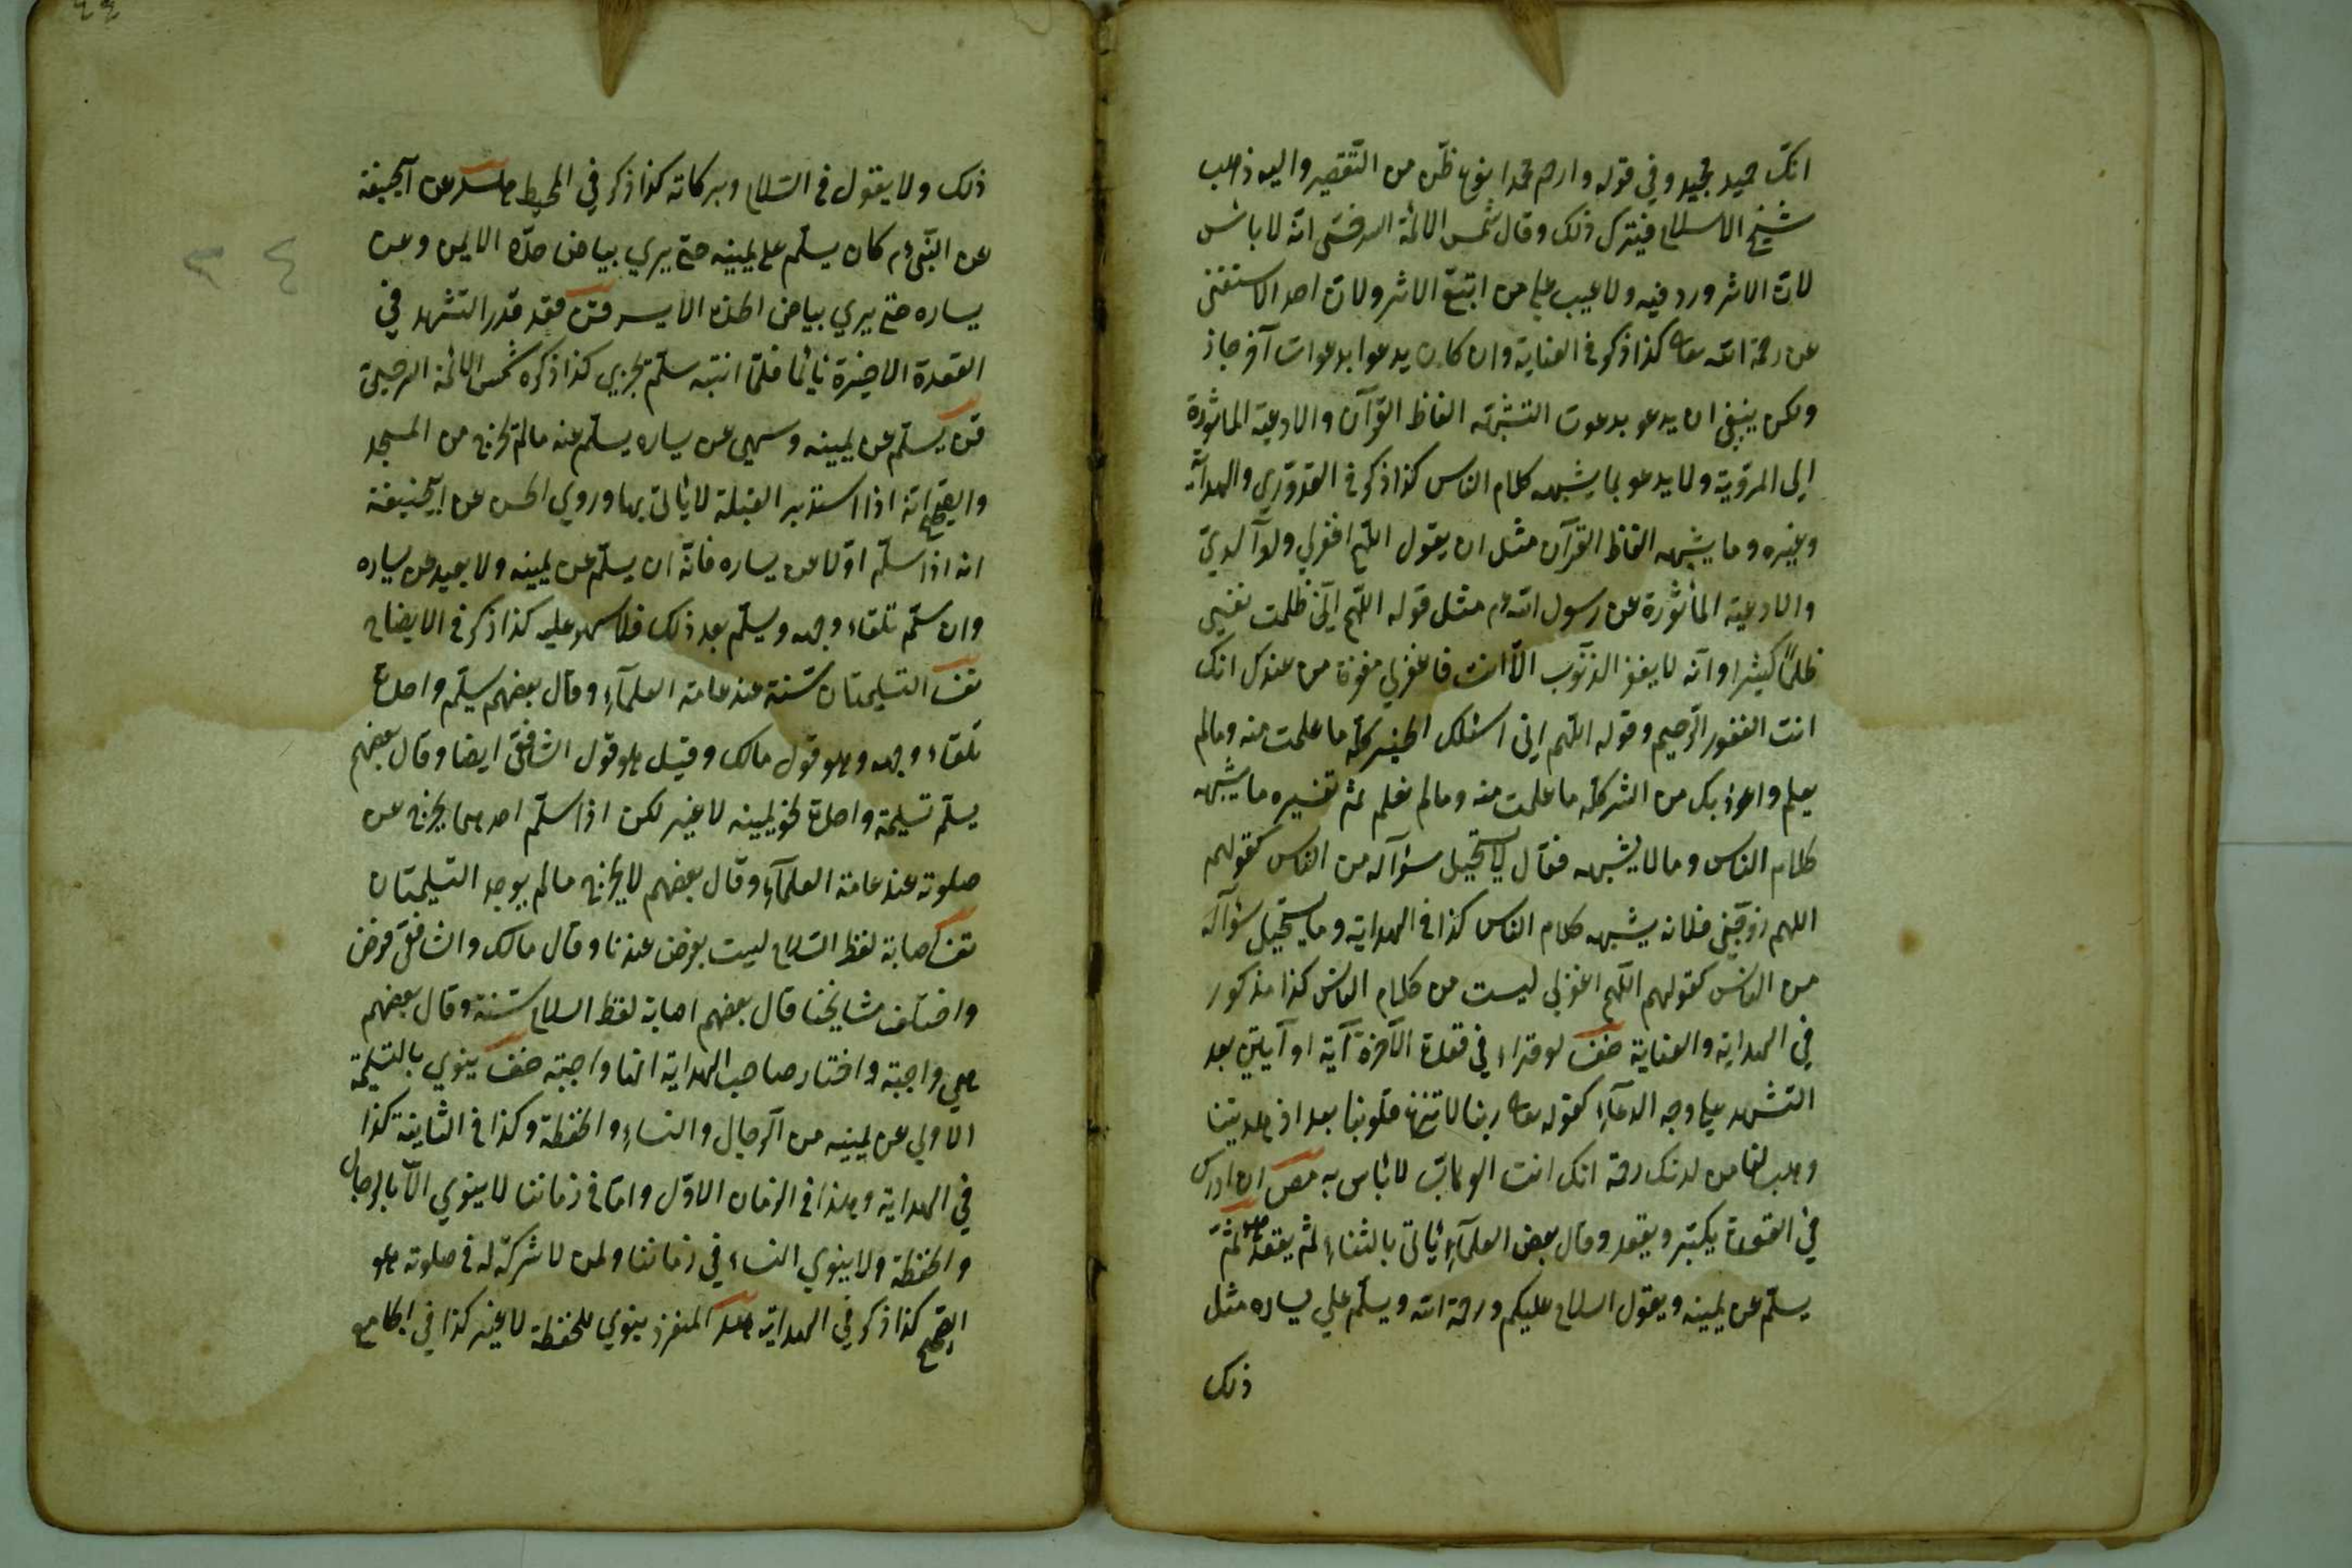 انك حميد مجيد وفي قوله وارحم محمدا نوع ظن من التقصير واليه ذهب
شيخ الاسلام فيترك ذلك وقال شمس الائمة السرخسى انه لا باس
لان الاثر ورد فيه ولا عيب على من اتبع الاثر ولان احد الا يستغنى
عن رحمة الله تعا كذا ذكر في العناية وان كان يدعوا بدعوات آخر جاز
ولكن ينبغي ان يدعو بدعوت التشبه الفاظ القرآن والادعية الماثورة
اي المروية ولا يدعو بما يشبه كلام الناس كذا ذكر في القدوري والهداية
وغيره وما يشبه الفاظ القرآن مثل ان يقول اللهم اغفر لي ولوالدي
والادعية المأثورة عن رسول الله عم مثل قوله اللهم اني ظلمت نفسي
ظلما كثيرا وانه لا يغفر الذنوب الا انت فاغفر لي مغفرة من عندك انك
انت الغفور الرحيم وقوله اللهم اني اسئلك الخير كله ما علمت منه ومالم
يعلم واعوذ بك من الشر كله ما علمت منه ومالم نعلم ثم تفسيره ما يشبه
كلام الناس وما لا يشبه فقال لا يستحيل سؤاله من الناس كقولهم
اللهم زوجني فلانه يشبه كلام الناس كذا في الهداية وما يستحيل سؤاله
من الناس كقولهم اللهم اغفر لي ليست من كلام الناس كذا مذكور
في الهداية والعناية صف لو قراء في قعدة الآخرة آية او آيتين بعد
التشهد على وجه الدعآء كقوله تعا ربنا لا تزغ قلوبنا بعد اذ هديتنا
وهب لنا من لدنك رحمة انك انت الوهاب لا باس به ان ادرك
في القعدة يكبر ويقعد وقال بعض العلمآء يأتي بالثناء ثم يقعد ثم
يسلم عن يمينه ويقول السلام عليكم ورحمة الله ويسلم علي يساره مثل
ذلك
ذلك ولا يقول في السلام وبركاته كذا ذكر في المحيط عن ابيحنيفة
عن النبي عم كان يسلم على يمينه حتى يري بياض خده الايمن وعن
يساره حتى يري بياض الخده الايسر قعد قدر التشهد في
القعدة الاخيرة نائما فلما انتبه سلم يجزي كذا ذكره شمس الائمة
يسلم عن يمينه وسهى عن يساره يسلم عنه مالم يخرج من المسجد
والصحيح انه اذا استدبر القبلة لا ياتى بها وروي الحسن عن ابيحنيفة
انه اذا سلم اولا عن يساره فانه ان يسلم عن يمينه ولا يعيد عن يساره
وان سلم تلقاء وجهه ويسلم بعد ذلك فلا سهو عليه كذا ذكر في الايضاح
تف التسليمتان سنة عند عامة العلمآء وقال بعضهم يسلم واحدة
تلقاء وجهه وهو قول مالك وقيل هو قول الشافعي ايضا وقال بعضهم
يسلم تسليمة واحدة نحو يمينه لا غير لكن اذا سلم احدهما يخرج عن
صلوته عند عامة العلمآء وقال بعضهم لا يخرج مالم يوجد التسليمتان
تف اصابة لفظ السلام ليست بفرض عندنا وقال مالك والشافعي فرض
واختلف مشايخنا قال بعضهم اصابة لفظ السلام سنة وقال بعضهم
هي واجبة واختار صاحب الهداية انها واجبة صف ينوي بالتسليمة
الاولي عن يمينه من الرجال والنساء والحفظة وكذا في الثانية كذا
في الهداية وهذا في الزمان الاول واما في زماننا لا ينوي الا بالرجال
والحفظة ولا ينوي النساء في زماننا ولمن لا شركة له في صلوته هو
الصحيح كذا ذكر في الهداية المنفرد ينوي للحفظة لا غير كذا في الجامع